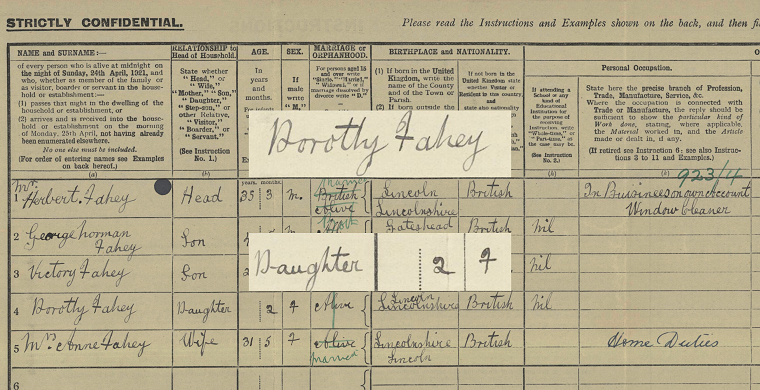 STRICTLY CONFIDENTIAL.
Please read the Instructions and Examples shown on the back, and then fi
NAME and SURNAME:—
of every person who is alive at midnight on
the night of Sunday, 24th April, 1921, and
who, whether as member of the family or
as visitor, boarder or servant in the house-
hold or establishment:—
(1) passes that night in the dwelling of the
household or establishment, or
(2) arrives and is received into the house-
hold or establishment on the morning
of Monday, 25th April, not having already
been enumerated elsewhere.
No one else must be included.
(For order of entering names see Examples
on back hereof.)
(a)
RELATIONSHIP to
Head of Household.
State whether
"Head," or
"Wife,"
"Mother," "Son,"
"Daughter,"
"Step-son," or
other Relative,
"Visitor,"
"Boarder," or
"Servant."
(See Instruction
No. 1.)
(b)
AGE.
In
years
and
months.
SEX.
If
male
write
"M."
MARRIAGE or
ORPHANHOOD.
For persons aged 15
and over write
BIRTHPLACE and NATIONALITY.
(1) If born in the United
Kingdom, write the
name of the County
and of the Town or
Parish.
(2) If born outside the
If not born in the
United Kingdom
state whether
Visitor or
Resident in this country,
If attending a
School or any
kind of
Educational
Institution for
the purpose of
receiving
Instruction, write
"Whole-time," or
"Part-time," as
the case may be.
(See Instruction
No. 2.)
(h)
Personal Occupation.
State here the precise branch of Profession,
Trade, Manufacture, Service, &c.
Where the occupation is connected with
Trade or Manufacture, the reply should be
sufficient to show the particular kind of
Work done, stating, where applicable,
the Material worked in, and the Article
made or dealt in, if any.
(If retired see Instruction 6; see also Instruc-
tions 3 to 11 and Examples.)
Dorothy Fahey
923/4
years. months.
1 Mr Herbert Fahey Head 35 3 M. married British Alive Lincoln Lincolnshire British In Buisiness on own account Window Cleaner
2 George Norman Fahey Son Gateshead British Nil
3 Victory Fahey Son Nil
Daughter 2 7
4 Dorothy Fahey Daughter 2 7 Alive Lincoln Lincolnshire British Nil
5 Mrs Anne Fahey Wife 31 5 7 Alive married Lincolnshire Lincoln British Home Duties
6